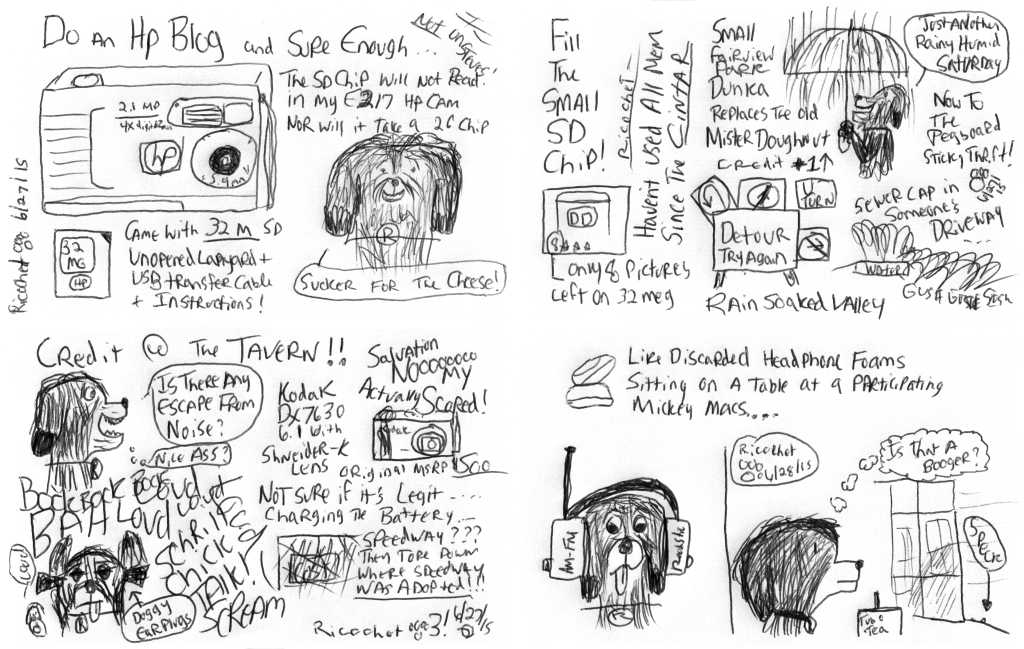 Do An HP Blog and Sure Enough...
Not ungreives!
The SD Chip will not Read
in my E217 HP Cam
Nor will it take a 2G Chip
2.1 MP
4x digital
hp
Ricochet 6/27/15
32
MG
HP
Came with 32 M SD
Unopened Lanyard +
USB transfer Cable
+ Instructions!
R
Sucker For The Cheese!
Fill
The
Small
SD
Chip!
Ricochet -
Havent used All Mem
Since The Cintar
Only 8 Pictures
Left on 32 meg
Small
Fairview
Park
Dunka
Replaces The old
Mister Doughnut
Credit #1↑
U
Turn
Detour
Try Again
Rain Soaked Valley
Just Another
Rainy Humid
Saturday
Now To
The
Pegboard
Sticky Thrift!
6/27/15
Sewer Cap in
Someone's
Driveway
....
Water
Gush Gush
Credit @ The Tavern!!
Is There Any
Escape From
Noise?
Nice Ass?
Bock Bock Bock
BAH Loud Loud
Schrill
Chick
Talk!
Scream
Loud
Doggy
Earplugs
R
Salvation
Nooooooo
My
Actuary Scared!
Kodak
DX7630
6.1 with
Shneider-K
Lens
Kodak
Original MSRP 500
Not Sure if it's Legit ....
Charging The Battery....
Speedway???
They Tore Down
Where Speedway
Was Adopted!!!
Ricochet 3! 6/27/15
Like Discarded Headphone Foams
Sitting on A Table at a Participating
Mickey Macs....
Am-Fm
Radio Sh
R
Ricochet
6/28/15
Is That A
Booger?
Tub o
Tea